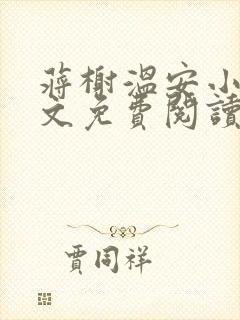 蔣榭溫安小
文免費閱讀
賈同祥